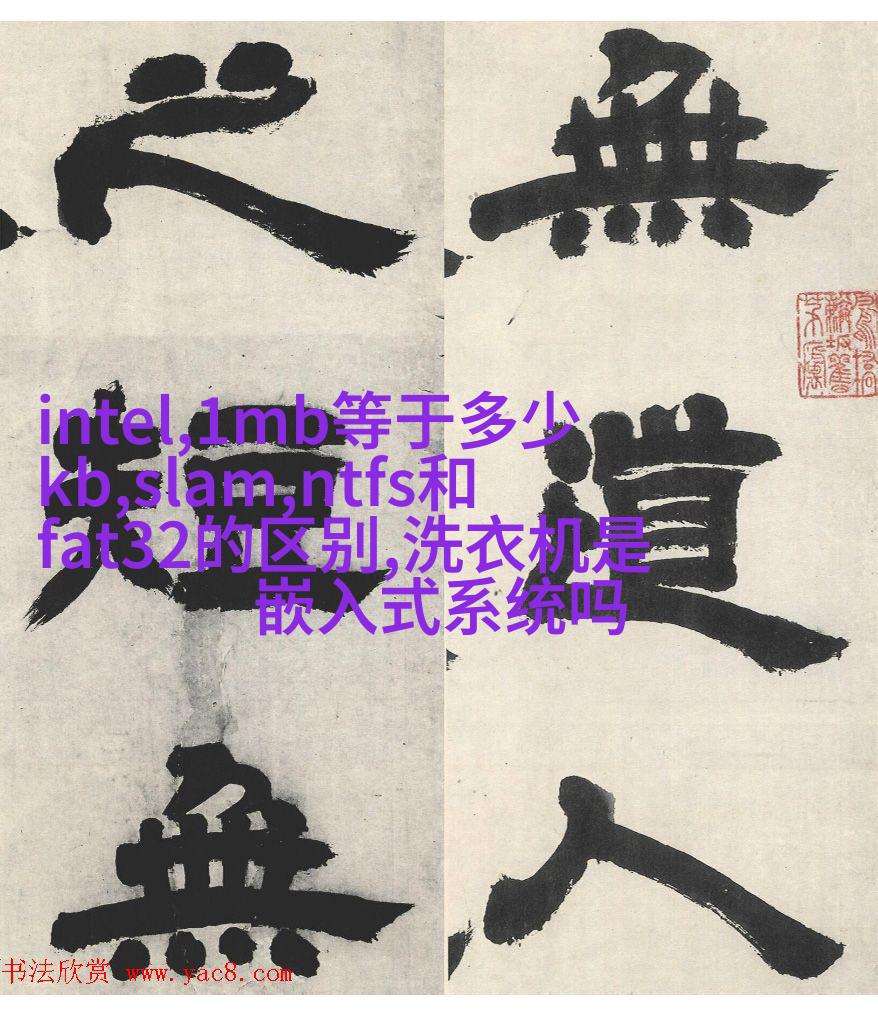 無道人
之短無
intel,1mb等于多少
kb,slam,ntfs和
fat32的区别,洗衣机是
嵌入式系统吗
书法欣赏 www.yac8.com